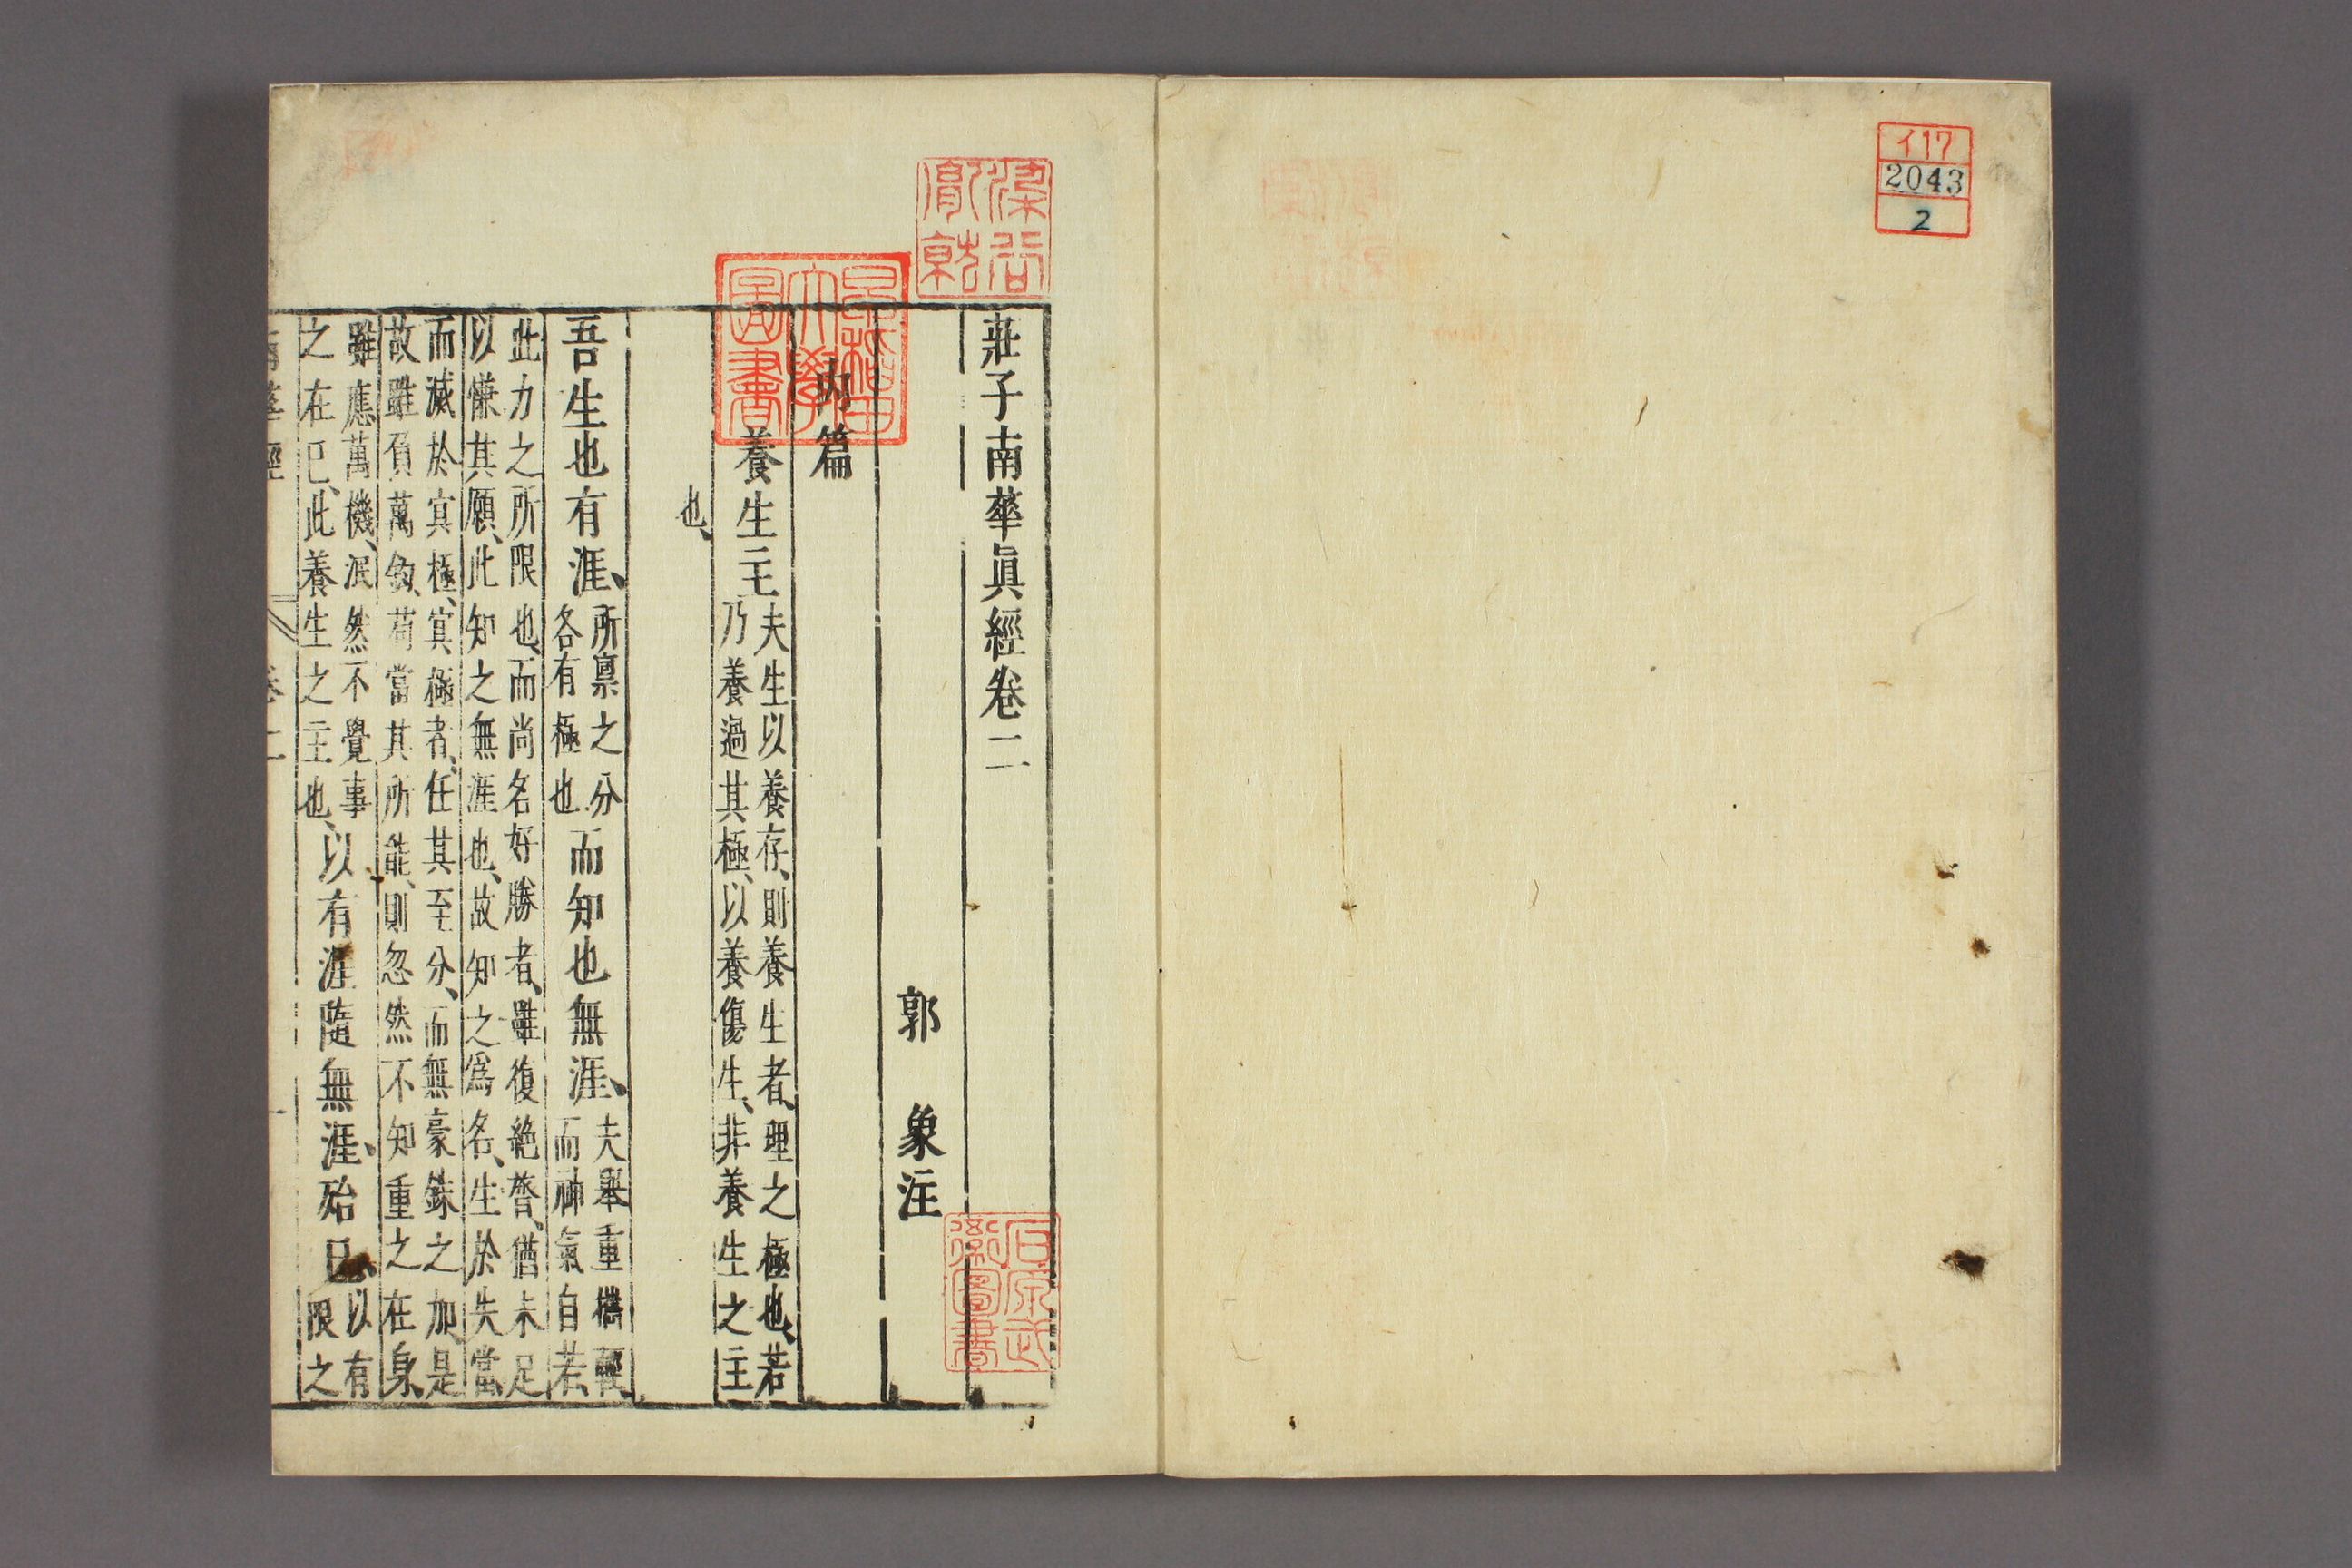 イ17
2043
2
莊子南華眞經卷二
郭象注
早稻田大學圖書
內篇
養生主夫生以養存、則養生者、理之極也、若
乃養過其極、以養傷生、非養生之主
也、
吾生也有涯、所禀之分
各有極也而知也無涯、夫舉重攜輕
而神氣自若、
此力之所限也、而尚名好勝者、雖復絶膂、猶未足
以慊其願、此知之無涯也、故知之爲名、生於失當、
而滅於冥極、冥極者、任其至分、而無豪銖之加、是
故雖負萬鈞、苟當其所能、則忽然不知重之在身、
雖應萬機、泯然不覺事
之在己、此養生之主也、以有涯隨無涯、殆已、以有
限之
南華經 卷二 一